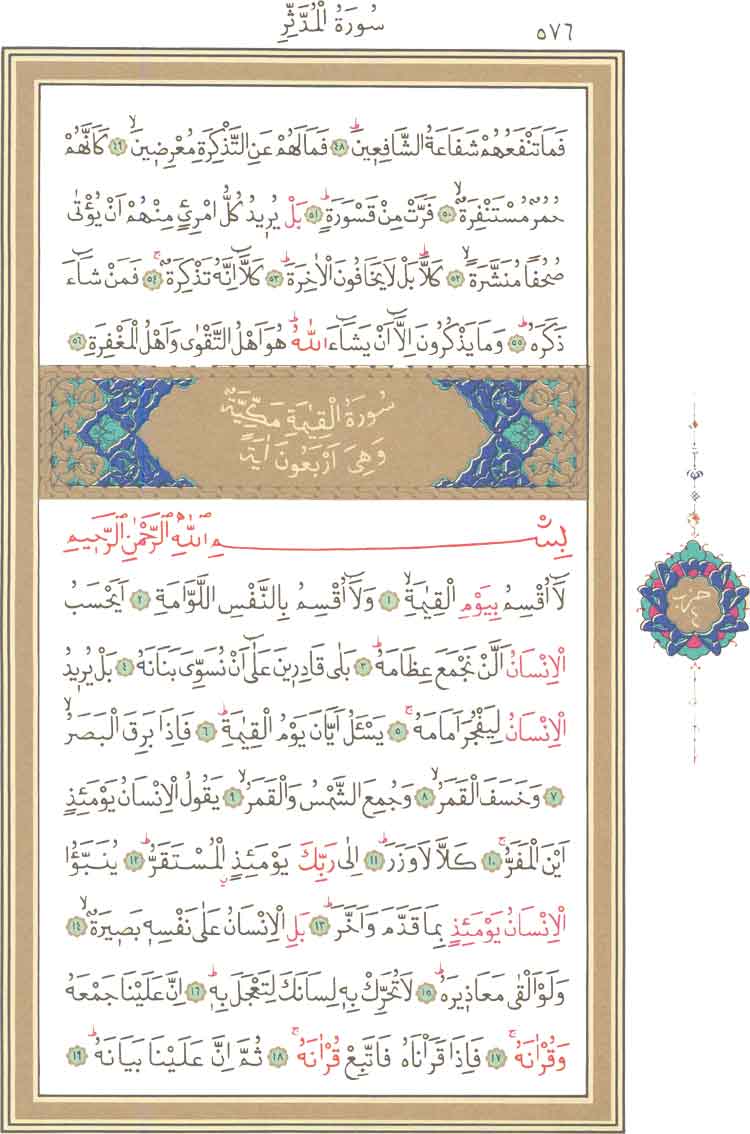 سُورَةُ الْمُدَّثِّرِ
٥٧٦
فَمَا تَنْفَعُهُمْ شَفَاعَةُ الشَّافِع۪ينَۜ ﴿٤٨﴾ فَمَا لَهُمْ عَنِ التَّذْكِرَةِ مُعْرِض۪ينَۙ ﴿٤٩﴾ كَاَنَّهُمْ
حُمُرٌ مُسْتَنْفِرَةٌۙ ﴿٥٠﴾ فَرَّتْ مِنْ قَسْوَرَةٍۜ ﴿٥١﴾ بَلْ يُر۪يدُ كُلُّ امْرِئٍ مِنْهُمْ اَنْ يُؤْتٰى
صُحُفاً مُنَشَّرَةًۙ ﴿٥٢﴾ كَلَّاۜ بَلْ لَا يَخَافُونَ الْاٰخِرَةَۜ ﴿٥٣﴾ كَلَّٓا اِنَّهُ تَذْكِرَةٌۚ ﴿٥٤﴾ فَمَنْ شَٓاءَ
ذَكَرَهُۜ ﴿٥٥﴾ وَمَا يَذْكُرُونَ اِلَّٓا اَنْ يَشَٓاءَ اللّٰهُۜ هُوَ اَهْلُ التَّقْوٰى وَاَهْلُ الْمَغْفِرَةِ ﴿٥٦﴾
سُورَةُ الْقِيٰمَةِ مَكِّيَّةٌ
وَهِيَ اَرْبَعُونَ اٰيَةً
بِسْمِ اللّٰهِ الرَّحْمٰنِ الرَّح۪يمِ
لَٓا اُقْسِمُ بِيَوْمِ الْقِيٰمَةِۙ ﴿١﴾ وَلَٓا اُقْسِمُ بِالنَّفْسِ اللَّوَّامَةِ ﴿٢﴾ اَيَحْسَبُ
الْاِنْسَانُ اَلَّنْ نَجْمَعَ عِظَامَهُۜ ﴿٣﴾ بَلٰى قَادِر۪ينَ عَلٰٓى اَنْ نُسَوِّيَ بَنَانَهُ ﴿٤﴾ بَلْ يُر۪يدُ
الْاِنْسَانُ لِيَفْجُرَ اَمَامَهُۚ ﴿٥﴾ يَسْـَٔلُ اَيَّانَ يَوْمُ الْقِيٰمَةِۜ ﴿٦﴾ فَاِذَا بَرِقَ الْبَصَرُۙ
﴿٧﴾ وَخَسَفَ الْقَمَرُۙ ﴿٨﴾ وَجُمِعَ الشَّمْسُ وَالْقَمَرُۙ ﴿٩﴾ يَقُولُ الْاِنْسَانُ يَوْمَئِذٍ
اَيْنَ الْمَفَرُّۚ ﴿١٠﴾ كَلَّا لَا وَزَرَۜ ﴿١١﴾ اِلٰى رَبِّكَ يَوْمَئِذٍۨ الْمُسْتَقَرُّۜ ﴿١٢﴾ يُنَبَّؤُا
الْاِنْسَانُ يَوْمَئِذٍ بِمَا قَدَّمَ وَاَخَّرَۜ ﴿١٣﴾ بَلِ الْاِنْسَانُ عَلٰى نَفْسِه۪ بَص۪يرَةٌۙ ﴿١٤﴾
وَلَوْ اَلْقٰى مَعَاذ۪يرَهُۜ ﴿١٥﴾ لَا تُحَرِّكْ بِه۪ لِسَانَكَ لِتَعْجَلَ بِه۪ۜ ﴿١٦﴾ اِنَّ عَلَيْنَا جَمْعَهُ
وَقُرْاٰنَهُۚ ﴿١٧﴾ فَاِذَا قَرَاْنَاهُ فَاتَّبِعْ قُرْاٰنَهُۚ ﴿١٨﴾ ثُمَّ اِنَّ عَلَيْنَا بَيَانَهُۜ ﴿١٩﴾
حزب
٤